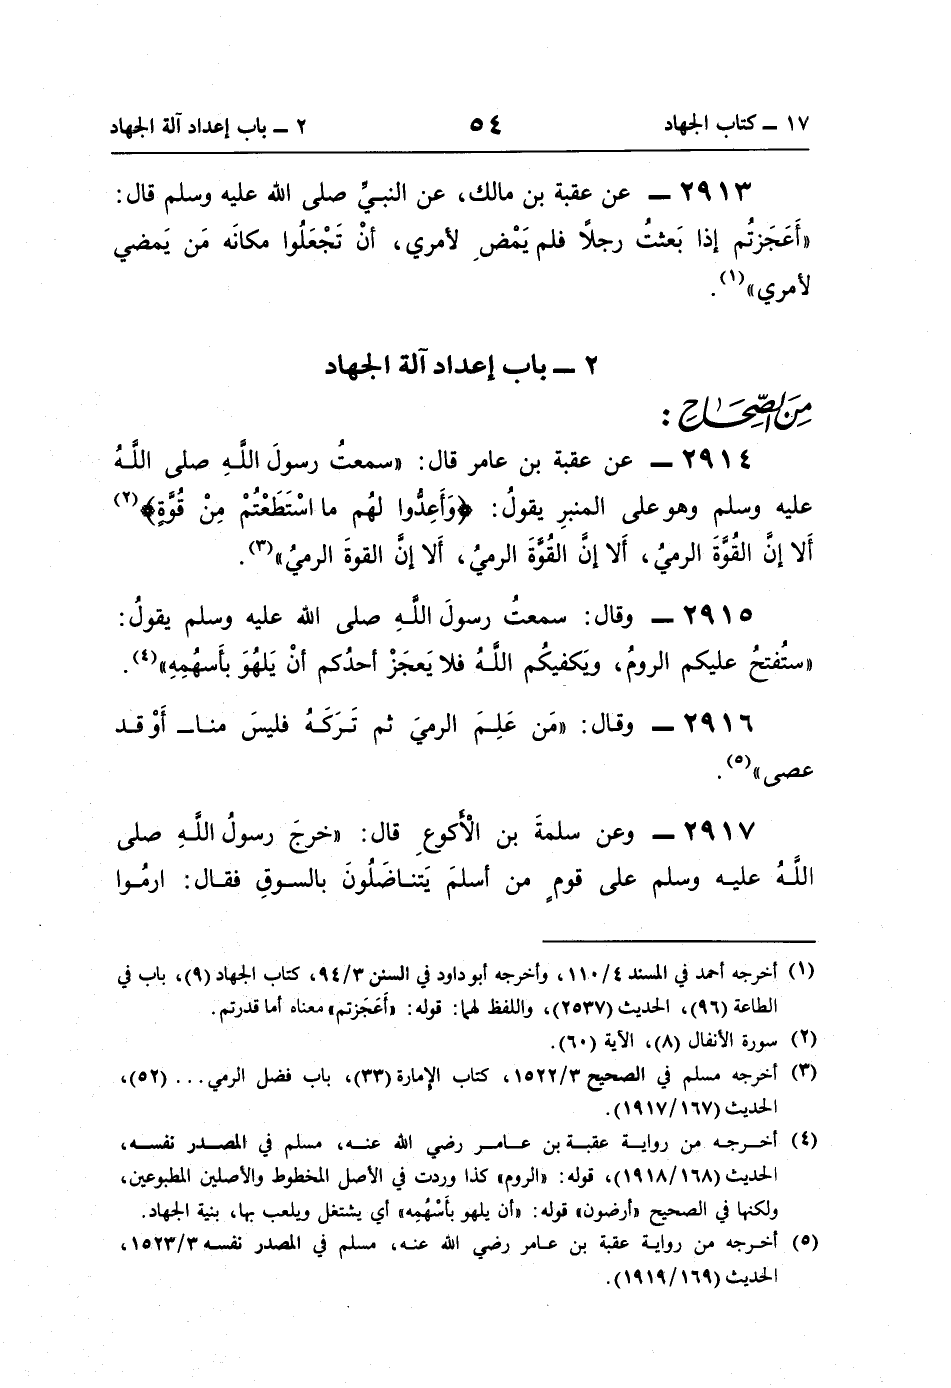 ١٧ ــ كتاب الجهاد ٥٤ ٢ ــ باب إعداد آلة الجهاد
٢٩١٣ ــ عن عقبة بن مالك، عن النبيِّ صلى الله عليه وسلم قال:
«أَعَجَزتُم إذا بَعثتُ رجلاً فلم يَمْضِ لأمري، أنْ تَجْعَلُوا مكانَه مَن يَمضي
لأمري»(١).
٢ ــ باب إعداد آلة الجهاد
مِنَ الصِّحَاحِ :
٢٩١٤ ــ عن عقبة بن عامر قال: «سمعتُ رسولَ اللَّهِ صلى اللَّهُ
عليه وسلم وهو على المنبرِ يقولُ: ﴿وَأَعِدُّوا لهُم ما اسْتَطَعْتُمْ مِنْ قُوَّةٍ﴾(٢)
أَلا إنَّ القُوَّةَ الرميُ، أَلا إنَّ القُوَّةَ الرميُ، أَلا إنَّ القوةَ الرميُ»(٣).
٢٩١٥ ــ وقال: سمعتُ رسولَ اللَّهِ صلى الله عليه وسلم يقولُ:
«ستُفتحُ عليكم الرومُ، ويَكفيكُم اللَّهُ فلا يَعجَزْ أحدُكم أنْ يَلهُوَ بأَسهُمِهِ»(٤).
٢٩١٦ ــ وقال: «مَن عَلِمَ الرميَ ثم تَرَكَهُ فليسَ منا ــ أَوْ قد
عصى»(٥).
٢٩١٧ ــ وعن سلمةَ بن الْأَكوعِ قال: «خرجَ رسولُ اللَّهِ صلى
اللَّهُ عليه وسلم على قومٍ من أسلمَ يَتناضَلُونَ بالسوقِ فقال: ارمُوا
(١) أخرجه أحمد في المسند ١١٠/٤، وأخرجه أبو داود في السنن ٩٤/٣، كتاب الجهاد (٩)، باب في
الطاعة (٩٦)، الحديث (٢٥٣٧)، واللفظ لهما: قوله: «أَعَجَزتم» معناه أما قدرتم.
(٢) سورة الأنفال (٨)، الآية (٦٠).
(٣) أخرجه مسلم في الصحيح ١٥٢٢/٣، كتاب الإمارة (٣٣)، باب فضل الرمي... (٥٢)،
الحديث (١٩١٧/١٦٧).
(٤) أخرجه من رواية عقبة بن عامر رضي الله عنه، مسلم في المصدر نفسه،
الحديث (١٩١٨/١٦٨)، قوله: «الروم» كذا وردت في الأصل المخطوط والأصلين المطبوعين،
ولكنها في الصحيح «أرضون» قوله: «أن يلهو بأَسْهُمِه» أي يشتغل ويلعب بها، بنية الجهاد.
(٥) أخرجه من رواية عقبة بن عامر رضي الله عنه، مسلم في المصدر نفسه ١٥٢٣/٣،
الحديث (١٩١٩/١٦٩).